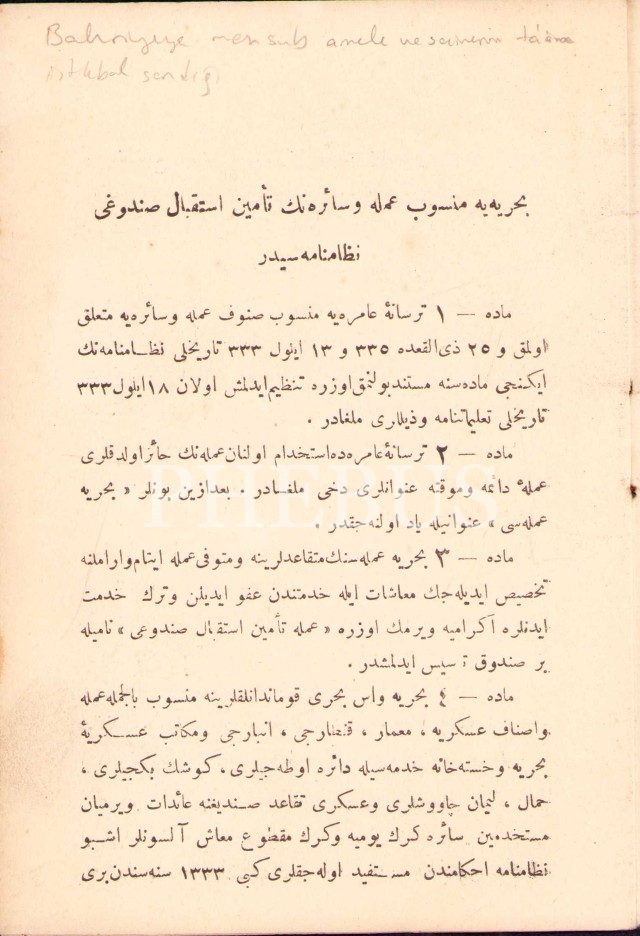 Bahriyeye mensub amele ve sairenin
istikbal sandığı
بحریه‌یه منسوب عمله وسائره‌نك تأمین استقبال صندوغی
نظامنامه‌سیدر
ماده — ١ ترسانهٔ عامره‌یه منسوب صنوف عمله وسائره‌یه متعلق
اولمق و ٢٥ ذی‌القعده ٣٣٥ و ١٣ ایلول ٣٣٣ تاریخلی نظامنامه‌نك
ایكنجی ماده‌سنه مستند بولنمق اوزره تنظیم ایدلمش اولان ١٨ ایلول ٣٣٣
تاریخلی تعلیماتنامه وذیللری ملغادر .
ماده — ٢ ترسانهٔ عامره‌ده استخدام اولنان عمله‌نك حائز اولدقلری
عملهٔ دائمه وموقته عنوانلری دخی ملغادر . بعدازین بونلر « بحریه
عمله‌سی » عنوانیله یاد اولنه‌جقدر .
PHEBUS
ماده — ٣ بحریه عمله‌سنك متقاعدلرینه ومتوفی عمله ایتام واراملنه
تخصیص ایدیله‌جك معاشات ایله خدمتندن عفو ایدیلن وترك خدمت
ایدنلره اكرامیه ویرمك اوزره « عمله تأمین استقبال صندوغی » نامیله
بر صندوق تأسیس ایدلمشدر .
ماده — ٤ بحریه واس بحری قوماندانلقلرینه منسوب بالجمله عمله
واصناف عسكریه ، معمار ، قنطارجی ، انبارجی ومكاتب عسكریهٔ
بحریه وخسته‌خانه خدمه‌سیله دائره اوطه‌جیلری ، كوشك بكجیلری ،
حمال ، لیمان چاووشلری وعسكری تقاعد صندیغنه عائدات ویرمیان
مستخدمین سائره كرك یومیه وكرك مقطوع معاش آلسونلر اشبو
نظامنامه احكامندن مستفید اوله‌جقلری كبی ١٣٣٣ سنه‌سندن بری